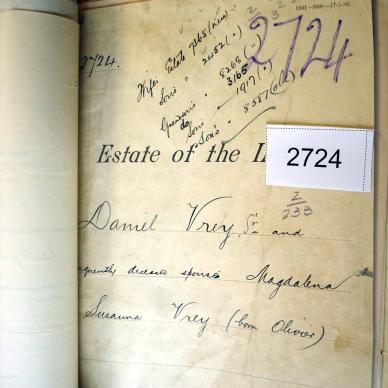 1841—5000—17-3-96
2724
2724.
Wife's Estate 7265 (new)
Son's " 2452 ( " )
Grandson's " 8268 ( " )
do " 3165
Son " 1917 ( " )
Son's " 8587 (old)
Estate of the
2724
2
233
Daniel Vrey, Sr and
deceased spouse Magdalena
Susanna Vrey (born Olivier)